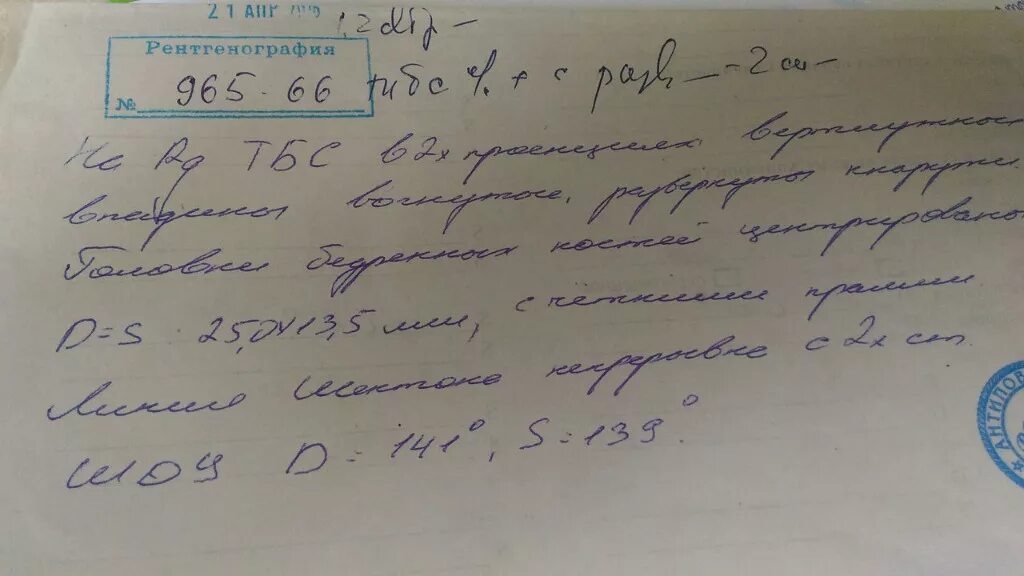 21 АПР
Рентгенография
№ 965-66 тбс % + с разв — -2 см-
На Rg ТБС в 2х проекциях вертлужные
впадины вогнутые, развернуты кнаружи.
Головки бедренных костей центрированы
D=S 25,0х13,5 мм, с чёткими краями.
Линия Шентона непрерывна с 2х ст.
ШДУ D = 141°, S = 139°.